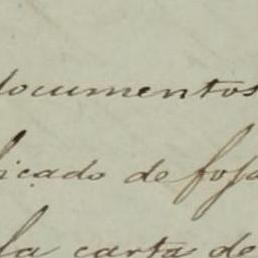 documentos
icado de fojas
la carta de